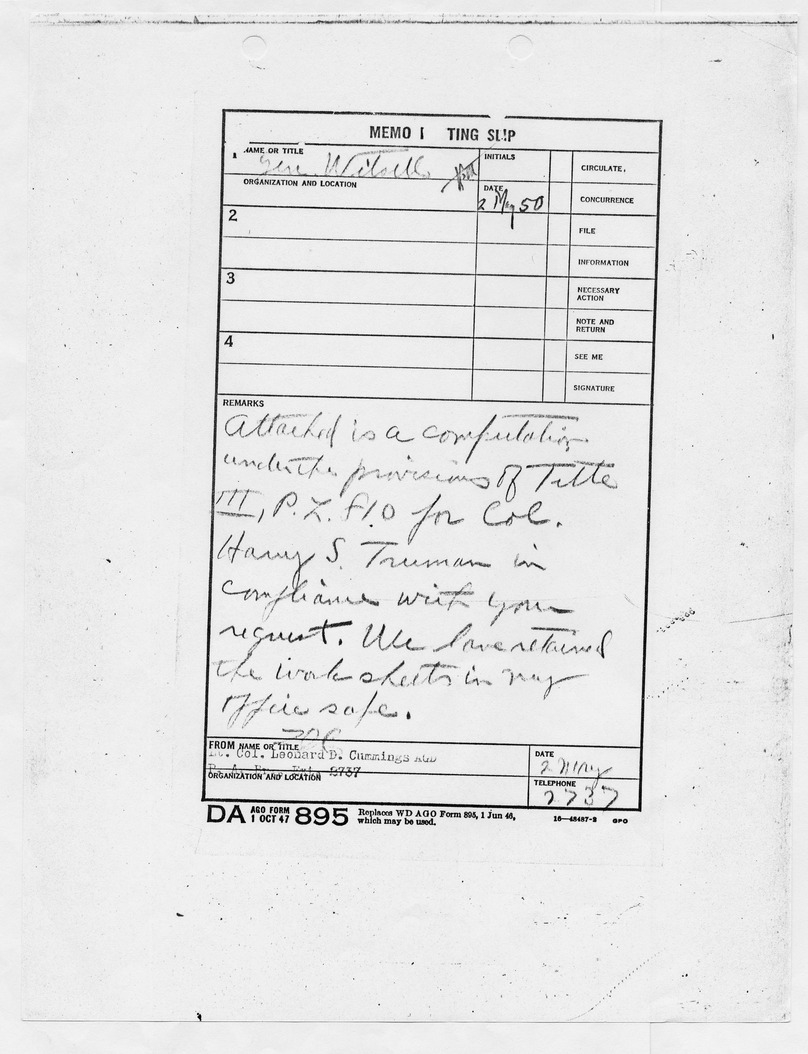 MEMO TING SLIP
1 NAME OR TITLE
Gen. Witsell
INITIALS
CIRCULATE,
ORGANIZATION AND LOCATION
DATE
2 May 50
CONCURRENCE
2
FILE
INFORMATION
3
NECESSARY
ACTION
NOTE AND
RETURN
4
SEE ME
SIGNATURE
REMARKS
Attached is a computation
under the provisions of Title
III, P.L. 810 for Col.
Harry S. Truman in
compliance with your
request. We have retained
the work sheets in my
office safe.
FROM NAME OR TITLE
Lt. Col. Leonard D. Cummings AGD
2737
ORGANIZATION AND LOCATION
DATE
2 May
TELEPHONE
2737
DA AGO FORM 1 OCT 47 895
Replaces WD AGO Form 895, 1 Jun 46,
which may be used.
16—48487-2 GPO